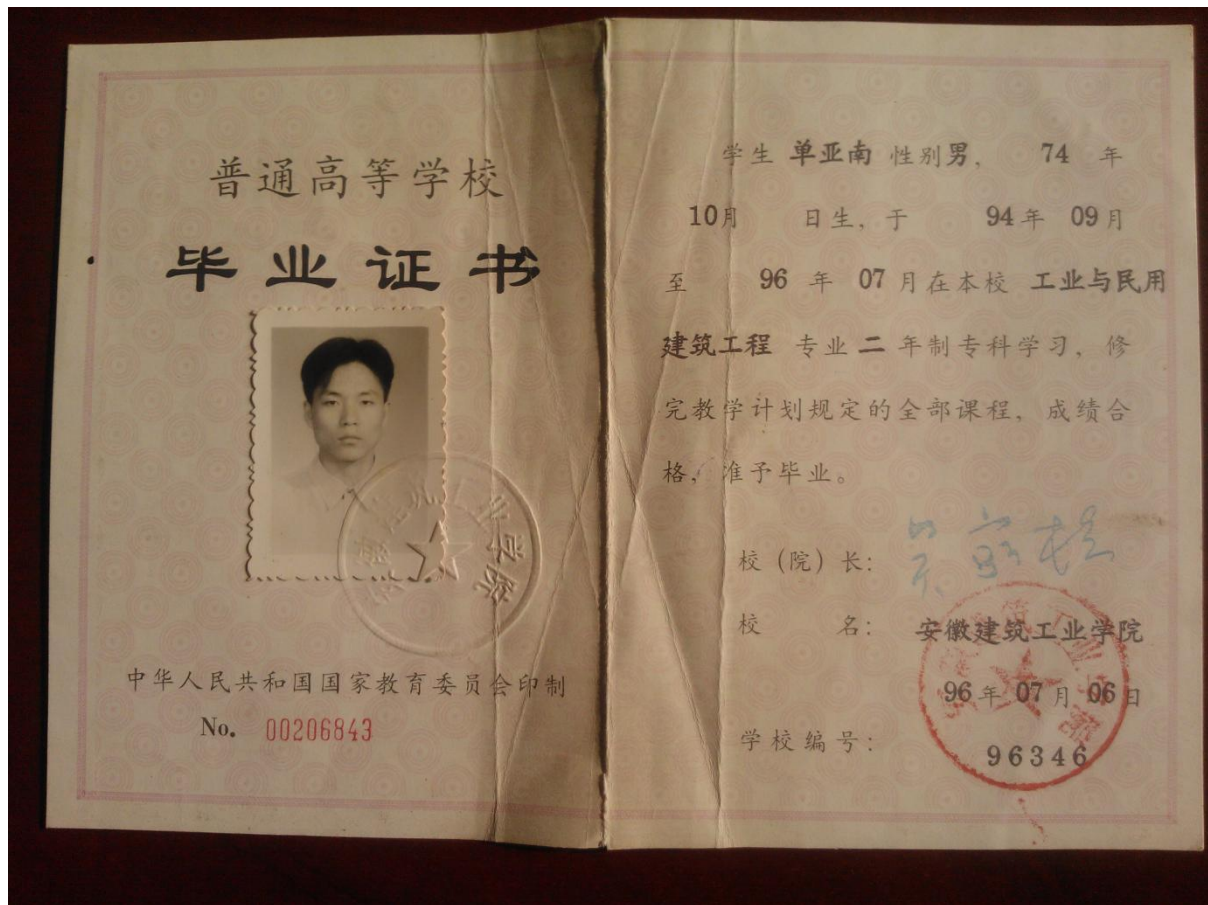 普通高等学校
毕业证书
中华人民共和国国家教育委员会印制
No. 00206843
学生 单亚南 性别男， 74 年
10月 日生，于 94年 09月
至 96 年 07 月在本校 工业与民用
建筑工程 专业 二 年制专科学习，修
完教学计划规定的全部课程，成绩合
格，准予毕业。
校（院）长：
校 名： 安徽建筑工业学院
96 年 07 月 06 日
学校编号： 96346